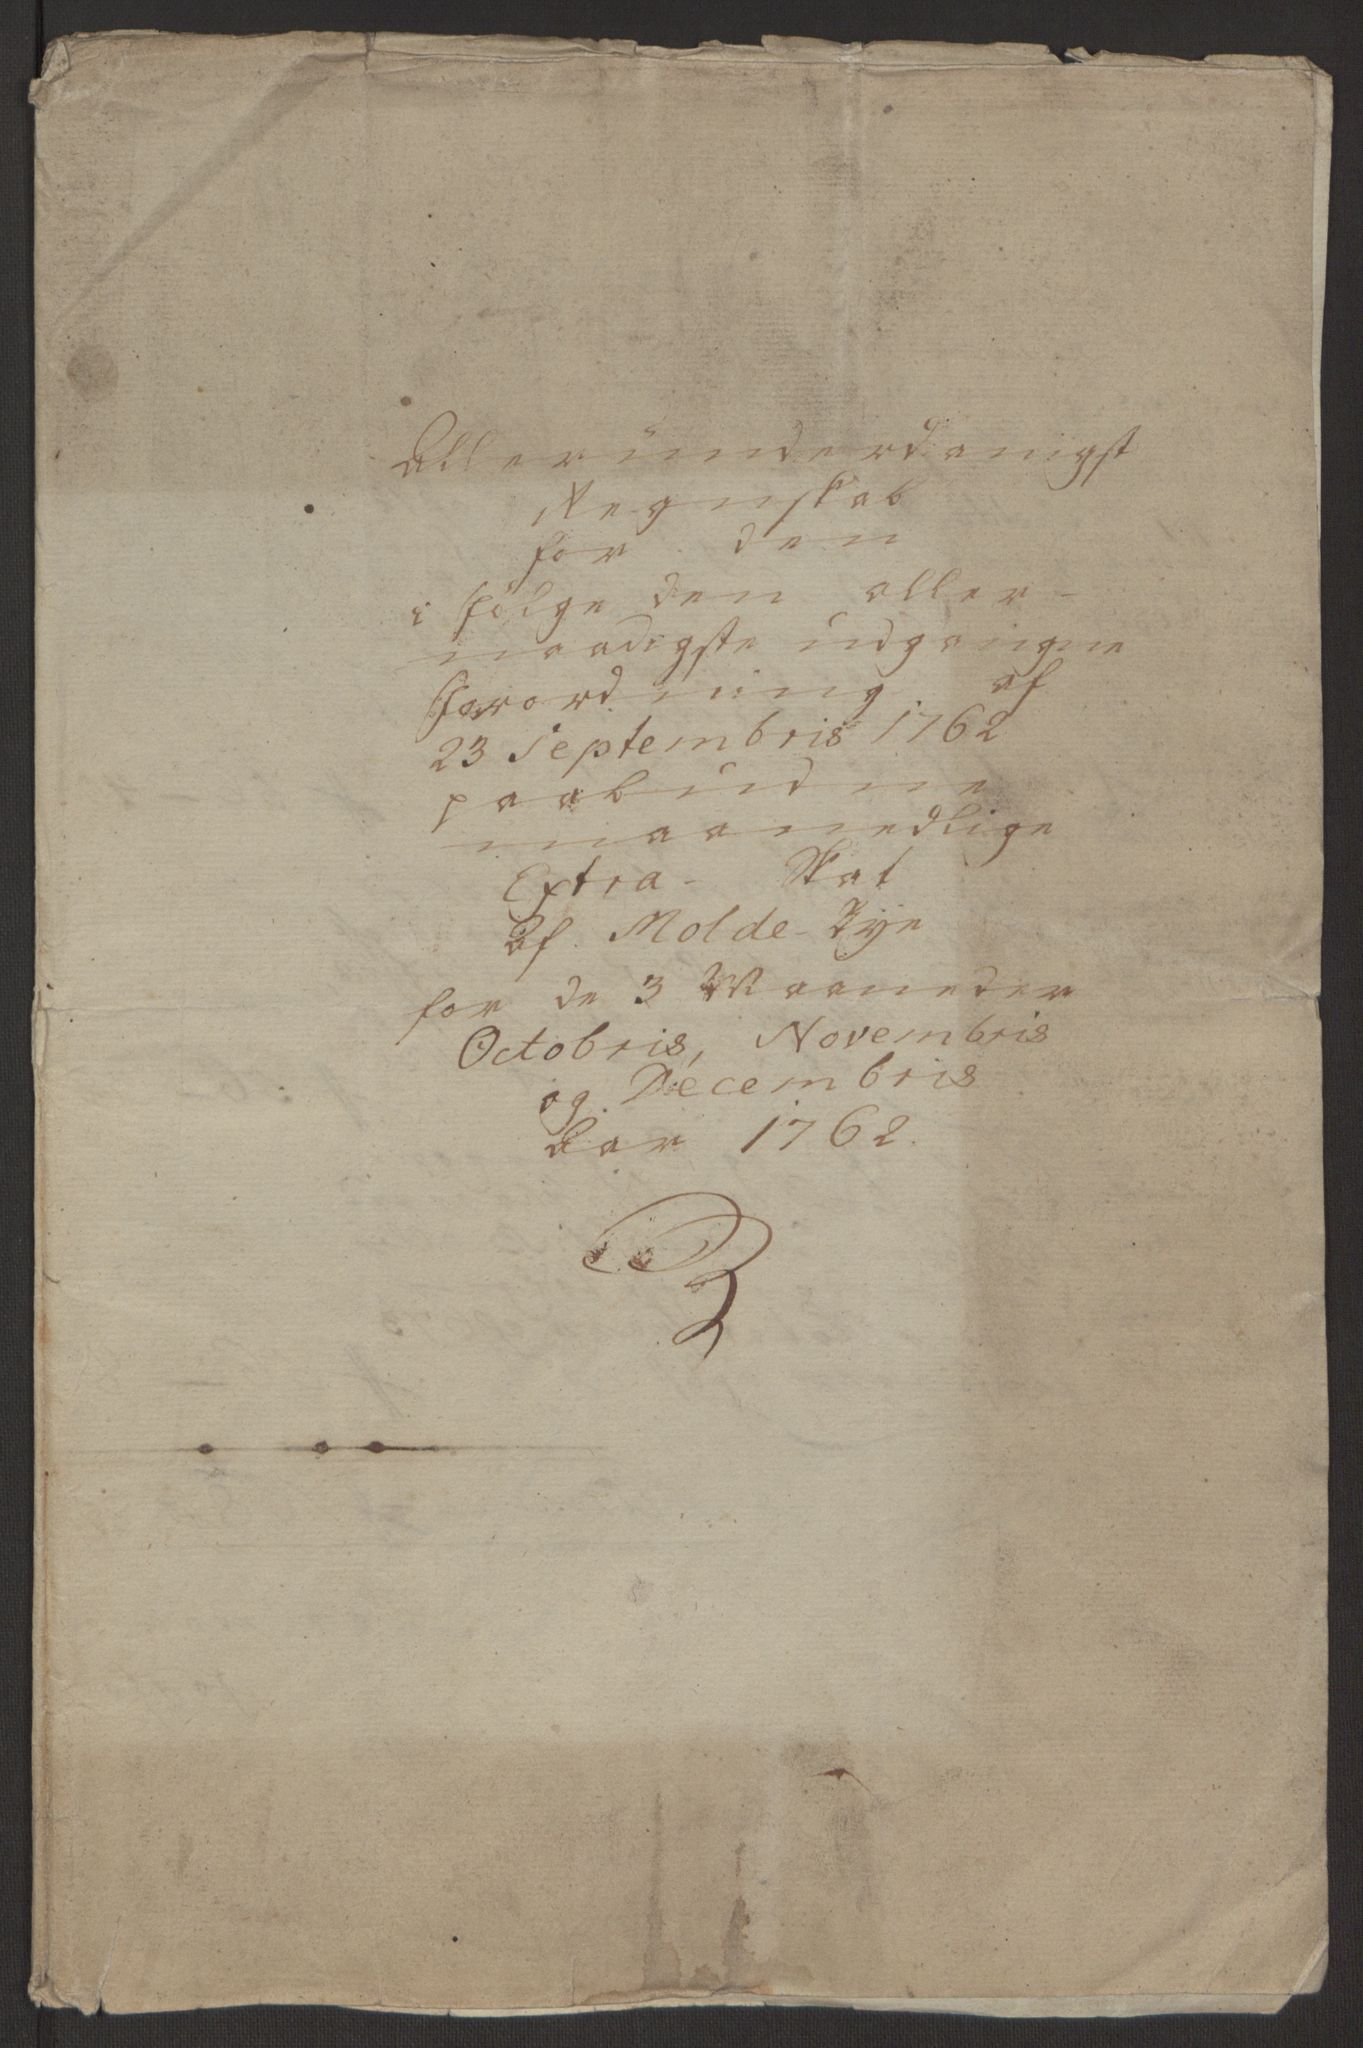 Allerunderdanigst
Regnskab
for den
i følge den aller-
naadigste udgangne
Forordning af
23 Septembris 1762
paabudne
maanedlige
Extra- Skat
Af Molde-Bye
for de 3 Maaneder
Octobris, Novembris
og Decembris
Aar 1762.